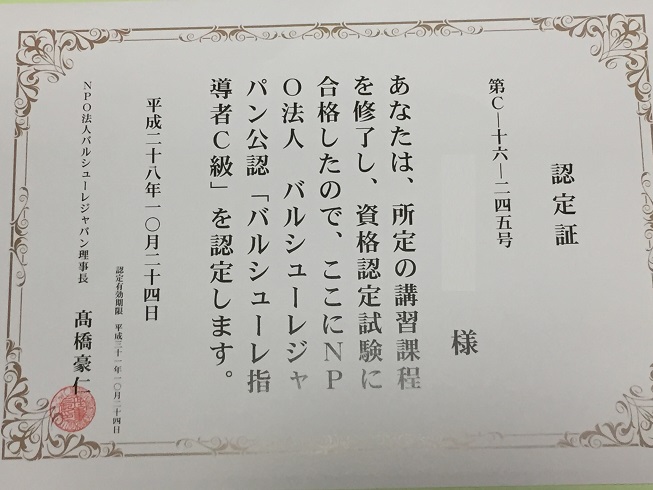 認定証
第C―十六―二四五号
様
あなたは、所定の講習課程
を修了し、資格認定試験に
合格したので、ここにNP
O法人　バルシューレジャ
パン公認「バルシューレ指
導者C級」を認定します。
平成二十八年一〇月二十四日
認定有効期限　平成三十一年一〇月二十四日
NPO法人バルシューレジャパン理事長
髙橋豪仁